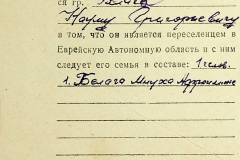 ся гр.
Науму Григорьевичу
в том, что он является переселенцем в
Еврейскую Автономную область и с ним
следует его семья в составе: 1 чел.
1. Белага